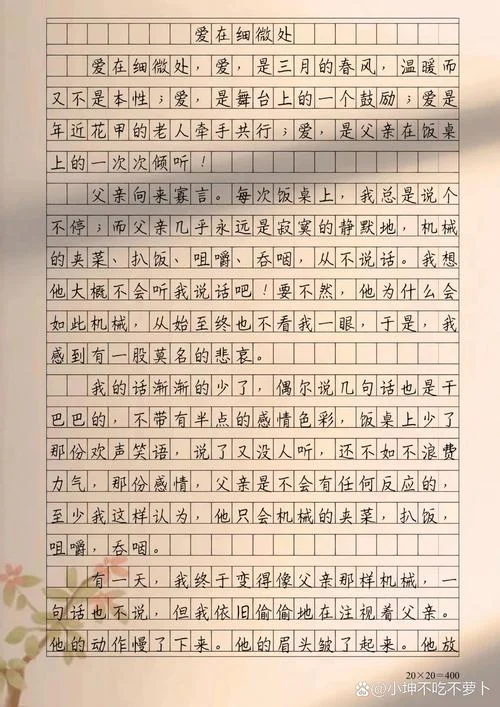 爱在细微处
爱在细微处，爱，是三月的春风，温暖而
又不是本性；爱，是舞台上的一个鼓励；爱是
年近花甲的老人牵手共行；爱，是父亲在饭桌
上的一次次倾听！
父亲向来寡言。每次饭桌上，我总是说个
不停；而父亲几乎永远是寂寞的静默地，机械
的夹菜、扒饭、咀嚼、吞咽，从不说话。我想
他大概不会听我说话吧！要不然，他为什么会
如此机械，从始至终也不看我一眼，于是，我
感到有一股莫名的悲哀。
我的话渐渐的少了，偶尔说几句话也是干
巴巴的，不带有半点的感情色彩，饭桌上少了
那份欢声笑语，说了又没人听，还不如不浪费
力气，那份感情，父亲是不会有任何反应的，
至少我这样认为，他只会机械的夹菜，扒饭，
咀嚼，吞咽。
有一天，我终于变得像父亲那样机械，一
句话也不说，但我依旧偷偷地在注视着父亲。
他的动作慢了下来。他的眉头皱了起来。他放
20×20=400
小坤不吃不萝卜